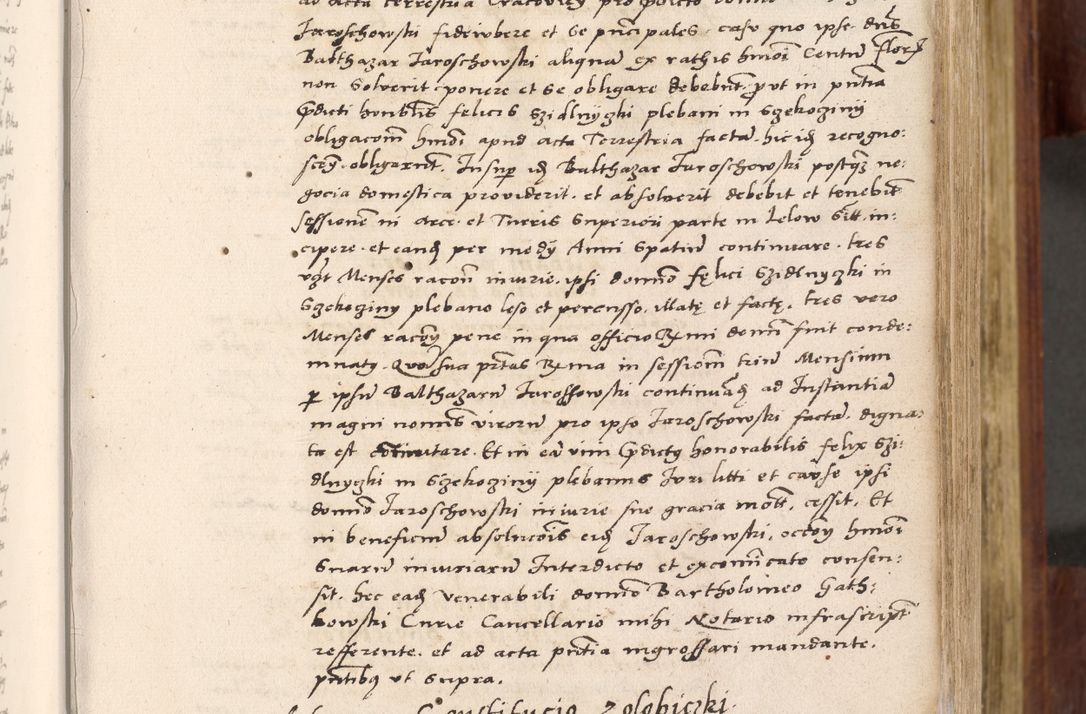 ad acta terrestria Cracovien pro predicto domino
Jaroschowski fideiubere et se principales, casu quo ipse dns
Balthazar Jaroschowski aliquam ex rathis hmoi Centum florz
non solverit ponere et se obligare debebunt, put in pntia
pdicti honblis felicis Szidlnyczki plebani in Szekoziny
obligacom hmoi apud acta Terrestria factam, hic idz recogno:
scen. obligarunt. Insuper idz Balthazar Jaroschowski postqz ne:
gocia domestica providerit, et absolverit debebit et tenebit
sessionem in Arce et Turris superiori parte in Lelow sitt. in:
cipere et eandz per medy Anni spatium continuare, tres
vzt Menses racon iniurie, ipsi domino felici Szidlnyczki in
Szekoziny plebano leso et percusso, illatę et factę, tres vero
Menses racony pene in qua officio Rmi domi fuit conde:
mnaty. Qua sua ptas Rma in sessionem trium Mensium
p ipsum Balthazarum Jarossowski continuadz ad Instantia
magni nominis virorum pro ipso Jaroschowski factam, digna:
ta est comutare. Et in eam vim pdictus honorabilis felix Szi:
dlnyczki in Szekoziny plebanus Juri litti et cause ipsi
domino Jaroschowski iniurie sue gracia mott. cessit. Et
in beneficium absolucois eidz Jaroschowski, occony hmoi
suarum iniuriarum Interdicto et excomicato consen:
sit. hec eadz venerabili domino Bartholomeo Gath:
kowski Curie Cancellario mihi Notario infrascript
refferente, et ad acta pntia ingrossari mandante,
pntibus ut supra.
Constitucio Zolobiczki